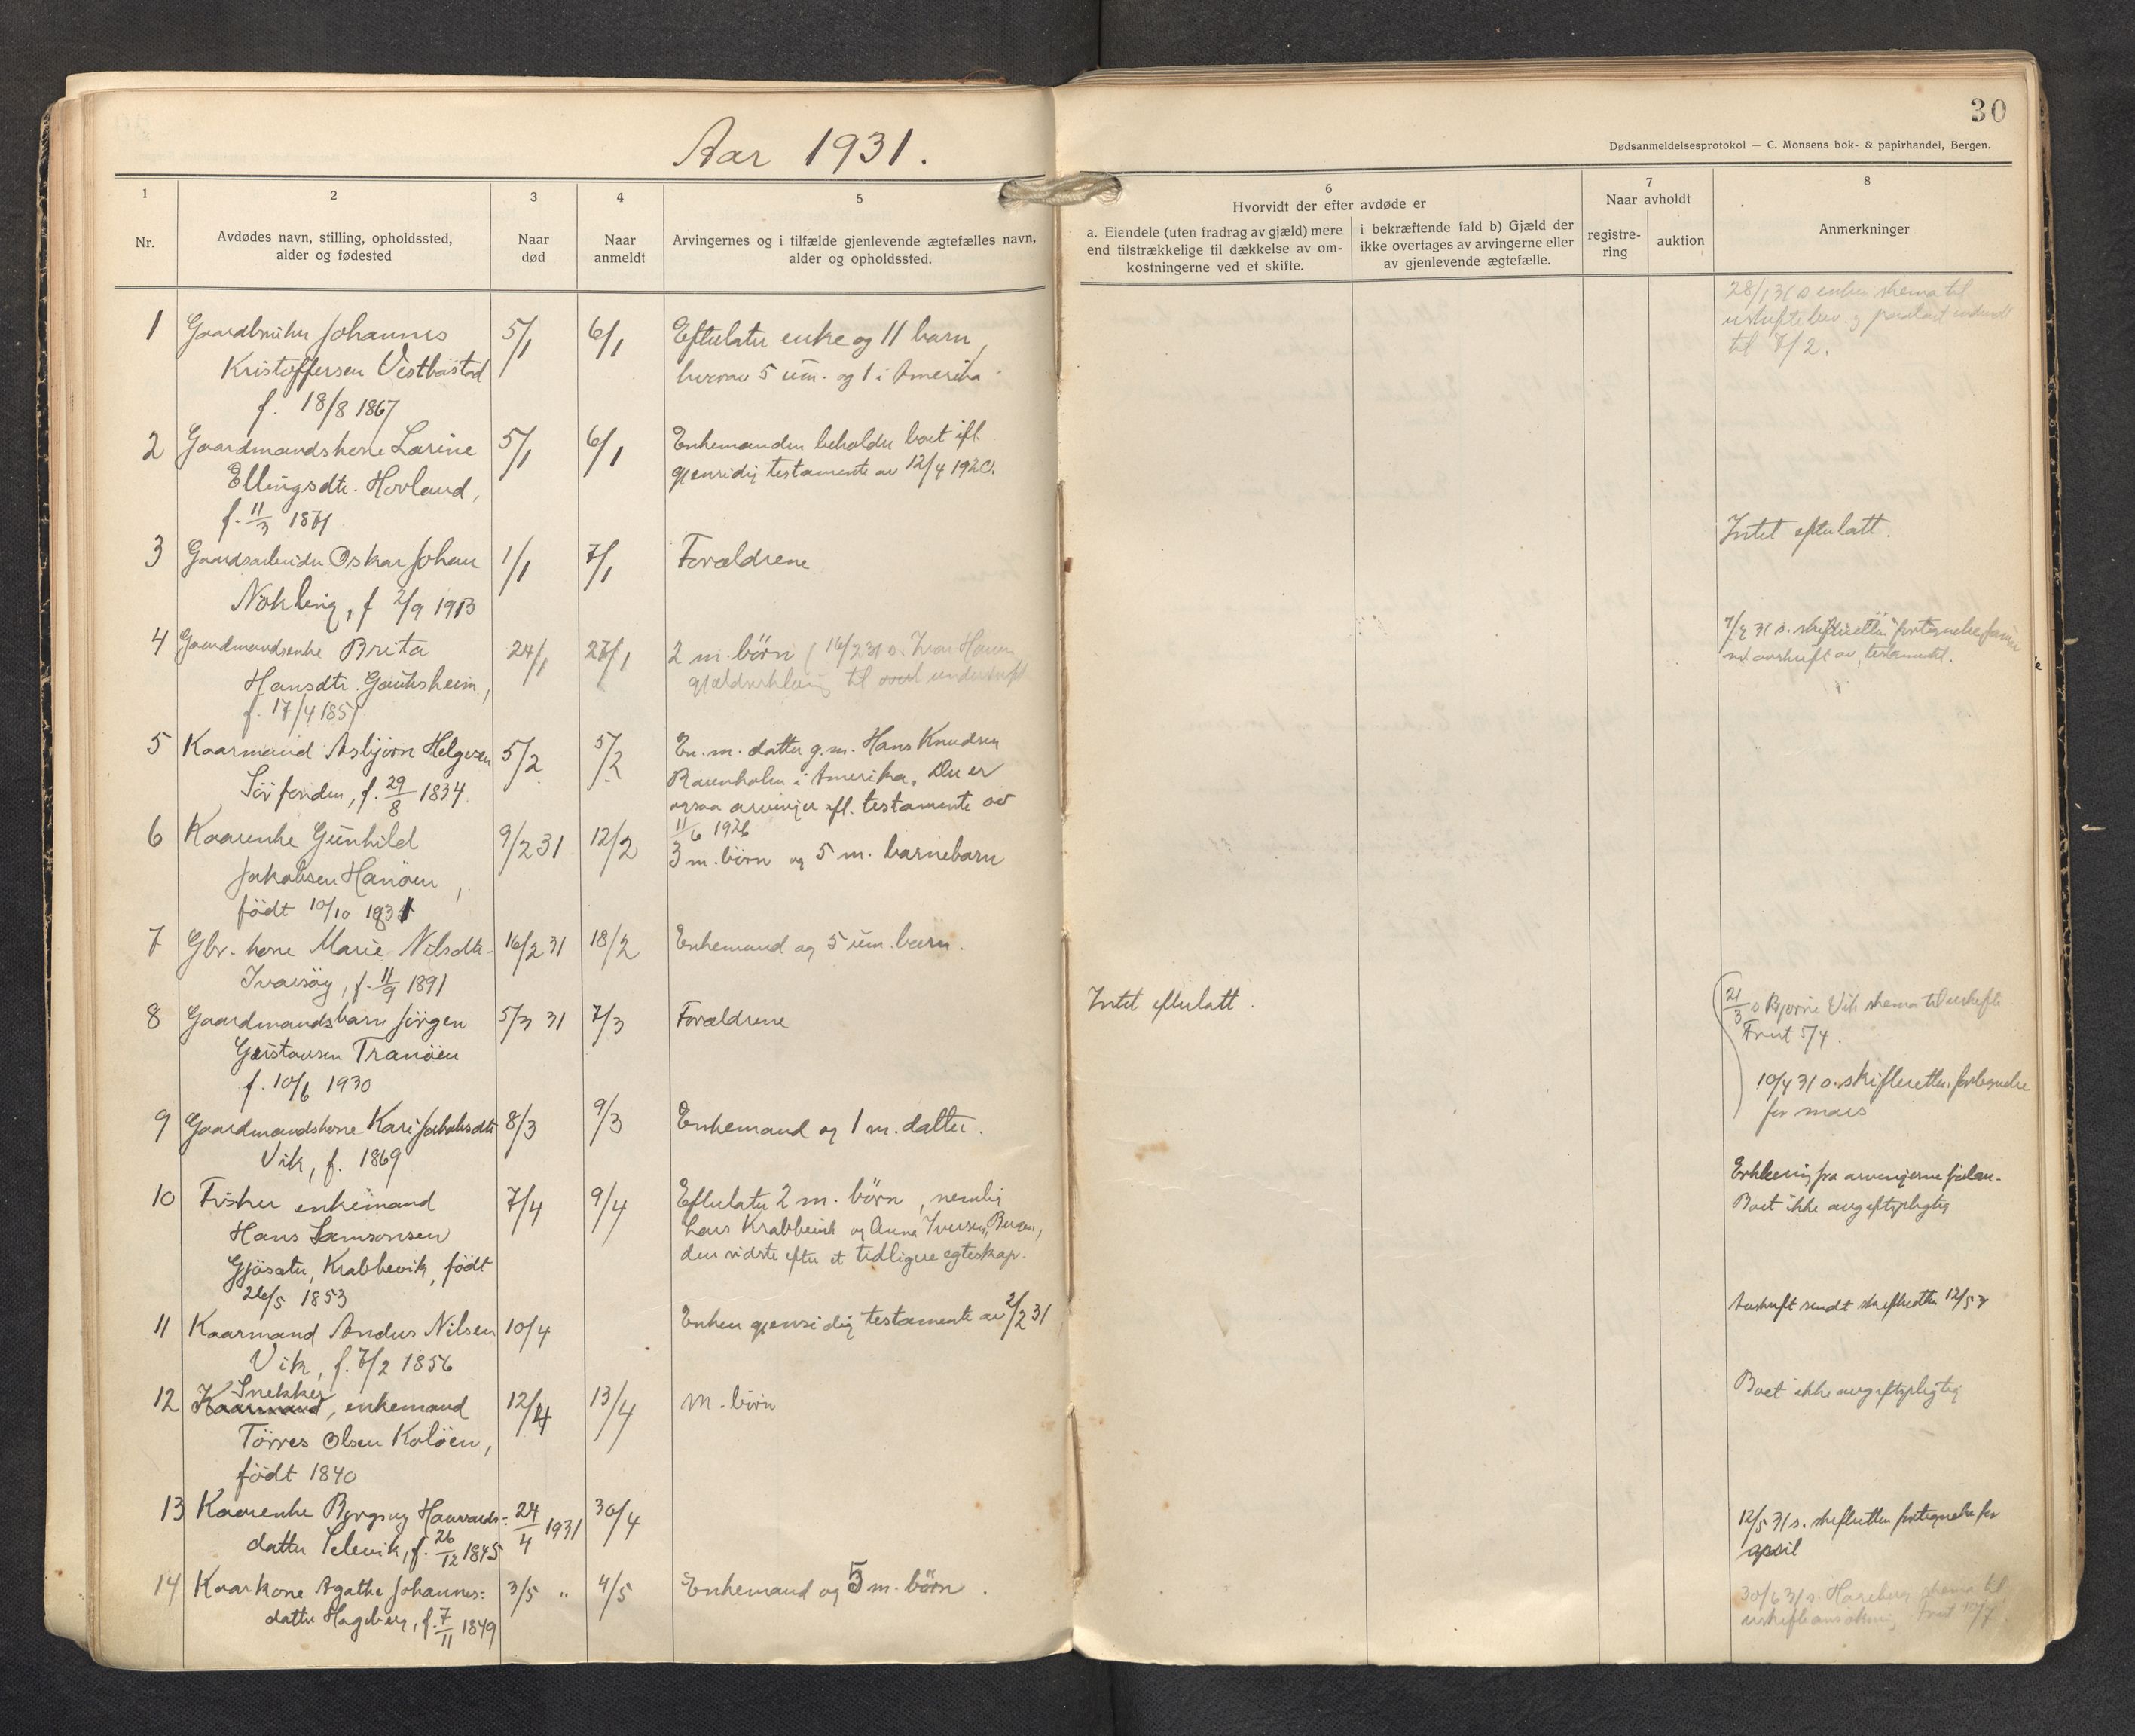 Aar 1931.
30
Dødsanmeldelsesprotokol — C. Monsens bok- & papirhandel, Bergen.
1
Nr.
2
Avdødes navn, stilling, opholdssted,
alder og fødested
3
Naar
død
4
Naar
anmeldt
5
Arvingernes og i tilfælde gjenlevende ægtefælles navn,
alder og opholdssted.
6
Hvorvidt der efter avdøde er
a. Eiendele (uten fradrag av gjæld) mere
end tilstrækkelige til dækkelse av om-
kostningerne ved et skifte.
i bekræftende fald b) Gjæld der
ikke overtages av arvingerne eller
av gjenlevende ægtefælle.
7
Naar avholdt
registre-
ring
auktion
8
Anmerkninger
1 Gaardbruker Johannes 5/1 6/1 Efterlater enke og 11 barn,
Kristoffersen Vestbøstad hvorav 5 um. og 1 i Amerika.
f. 18/8 1867
28/1 31 s enken skema til
til 7/2.
2 Gaardmandskone Larine 5/1 6/1 Enkemanden beholder boet ifl.
Ellingsdtr. Hovland, gjensidig testamente av 12/4 1920.
f. 11/3 1871
3 Gaardsarbeider Oskar Johan 1/1 7/1 Forældrene Intet efterlatt.
Nökling, f 2/9 1913
4 Gaardmandsenke Brita 24/1 27/1 2 m. börn (16/2 31 s. Ivar
Hansdtr. Gauksheim, gjældserklæring til
f. 17/4 185
31 s. skifteretten fortegnelse
m. avskrift av testamentet.
5 Kaarmand Asbjörn Helgesen 5/2 5/2 En m. datter g.m. Hans Knudsen
f. 29/8 1834 Ravnholm i Amerika. Der er
ogsaa arvinger efl. testamente av
11/6 1926
6 Kaarenke Gunhild 9/2 31 12/2 3 m. börn og 5 m. barnebarn
Jakobsen Hanöen,
födt 10/10 1831
7 Gbr. kone Marie Nilsdtr. 16/2 31 18/2 Enkemand og 5 um. barn.
Ivarsöy, f. 11/9 1891
8 Gaardmandsbarn Jörgen 5/3 31 7/3 Forældrene Intet efterlatt.
Gustavsen Tranöien
f. 10/6 1930
21/3 s Bjarne Vik skema til uskifte
Frist 5/4.
10/4 31 s. skifteretten fortegnelse
for mars
9 Gaardmandskone Kari Jakobsdtr 8/3 9/3 Enkemand og 1 m. datter.
Vik, f. 1869
10 Fisker enkemand 7/4 9/4 Efterlater 2 m. börn, nemlig
Hans Samsonsen Lars Krabbevik og Anna Iversen, Bergen,
Gjösæter, Krabbevik, födt den sidste efter et tidligere egteskap.
26/5 1853
Erklæring fra arvingerne
Boet ikke avgiftspligtig
11 Kaarmand Anders Nilsen 10/4 Enken gjensidig testamente av 2/2 31
Vik, f. 7/2 1856
Avskrift sendt skifteretten 12/5
12 Kaarmand Snekker, enkemand 12/4 13/4 m. börn Boet ikke avgiftspligtig
Törres Olsen Kolöen,
födt 1840
13 Kaarenke Borgny Haavards- 24/4 1931 30/4
datter Selevik, f. 26/12 1845
12/5 31 s. skifteretten fortegnelse for
april
14 Kaarkone Agathe Johannes= 3/5 " 4/5 Enkemand og 5 m. börn.
datter Hageberg, f. 7/11 1849
30/6 31 s. Hageberg skema til
uskifteansökning frist 10/7